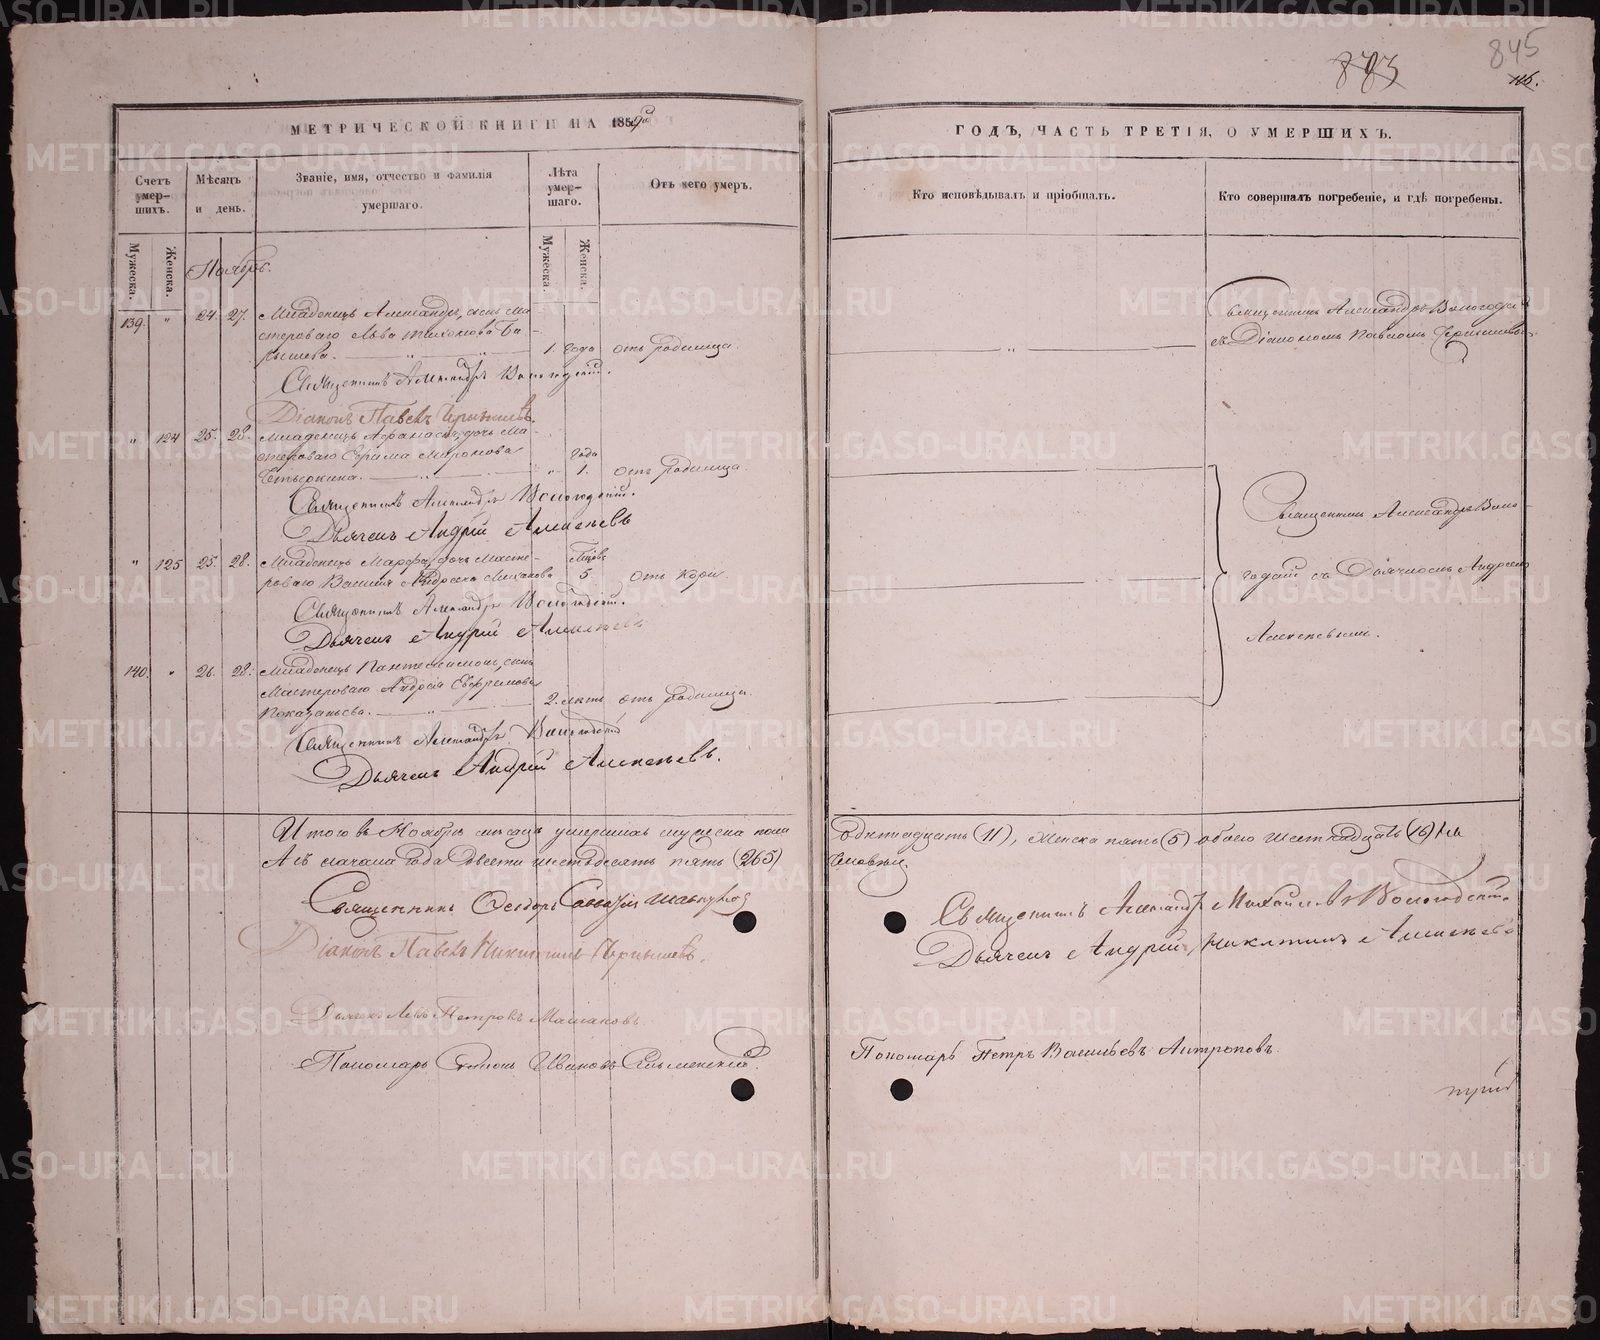 883
845
116.
МЕТРИЧЕСКОЙ КНИГИ НА 1859й
ГОДЪ, ЧАСТЬ ТРЕТІЯ, О УМЕРШИХЪ.
Счетъ умер-шихъ.
Мѣсяцъ и день.
Званіе, имя, отчество и фамилія умершаго.
Лѣта умер-шаго.
Отъ чего умеръ.
Кто исповѣдывалъ и пріобщалъ.
Кто совершалъ погребеніе, и гдѣ погребены.
Мужеска.
Женска.
Мужеска.
Женска.
Ноябрь.
139. " 24. 27. Младенецъ Александръ, сынъ Ма-
стероваго Льва Тихонова Ба-
рышева. 1. года отъ родимца.
Священникъ Александръ Вологодскій.
Діаконъ Павелъ Чернышевъ.
Священникъ Александръ Вологодскій
съ Діакономъ Павломъ Чернышевы
" 124 25. 28. Младенецъ Афанасія, дочь Ма-
стероваго Ефрима Миронова
года
" 1. отъ родимца.
Священникъ Александръ Вологодскій.
Дьячекъ Андрей Алексѣевъ
" 125 25. 28. Младенецъ Марфа, дочь Масте-
роваго Василья Андреева 5 отъ кори
Священникъ Александръ Вологодскій.
Дьячекъ Андрей Алексѣевъ
140. " 26. 28. Младенецъ Пантелеимонъ, сынъ
Мастероваго Андрея Евфремова
2. лѣтъ отъ родимца.
Священникъ Александръ Вологодскій
Дьячекъ Андрей Алексѣевъ.
Священникъ Александръ Воло-
годскій съ Дьячкомъ Андреемъ
Алексѣевымъ.
Итого въ Ноябрѣ мѣсяцѣ умершихъ мужеска пола
одиннадцать (11), женска пять (5) обоего шестнадцать (16)
А съ начала года двести шестьдесятъ пять (265)
человѣкъ.
Священникъ Ѳеодоръ
Священникъ Александръ Михайловъ Вологодскій.
Діаконъ Павелъ Никитинъ Чернышевъ.
Дьячекъ Андрей Никитинъ Алексѣевъ
Дьячекъ Левъ Петровъ
Пономарь Иванов
Пономарь Петръ Васильевъ Антроповъ.
METRIKI.GASO-URAL.RU